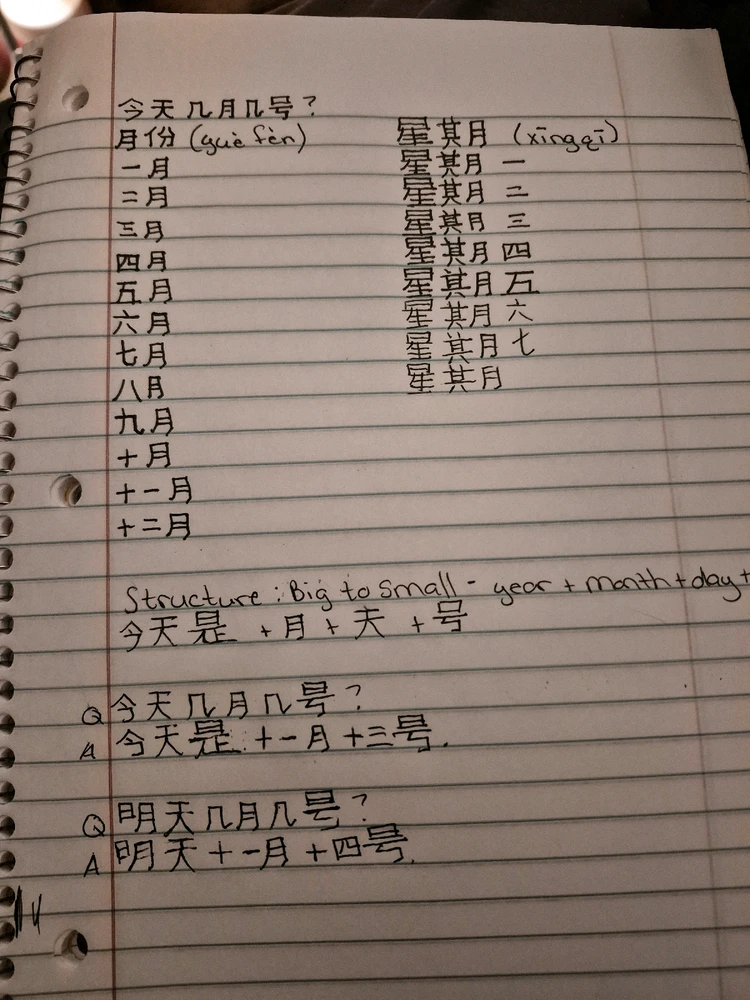 今天几月几号?
月份 (yuè fèn)
一月
二月
三月
四月
五月
六月
七月
八月
九月
十月
十一月
十二月
星其月 (xīngqī)
星其月 一
星其月 二
星其月 三
星其月 四
星其月 五
星其月 六
星其月 七
星其月
Structure: Big to small - year + month + day +
今天是 + 月 + 天 + 号
Q 今天几月几号?
A 今天是 十一月 十三号.
Q 明天几月几号?
A 明天十一月 十四号.